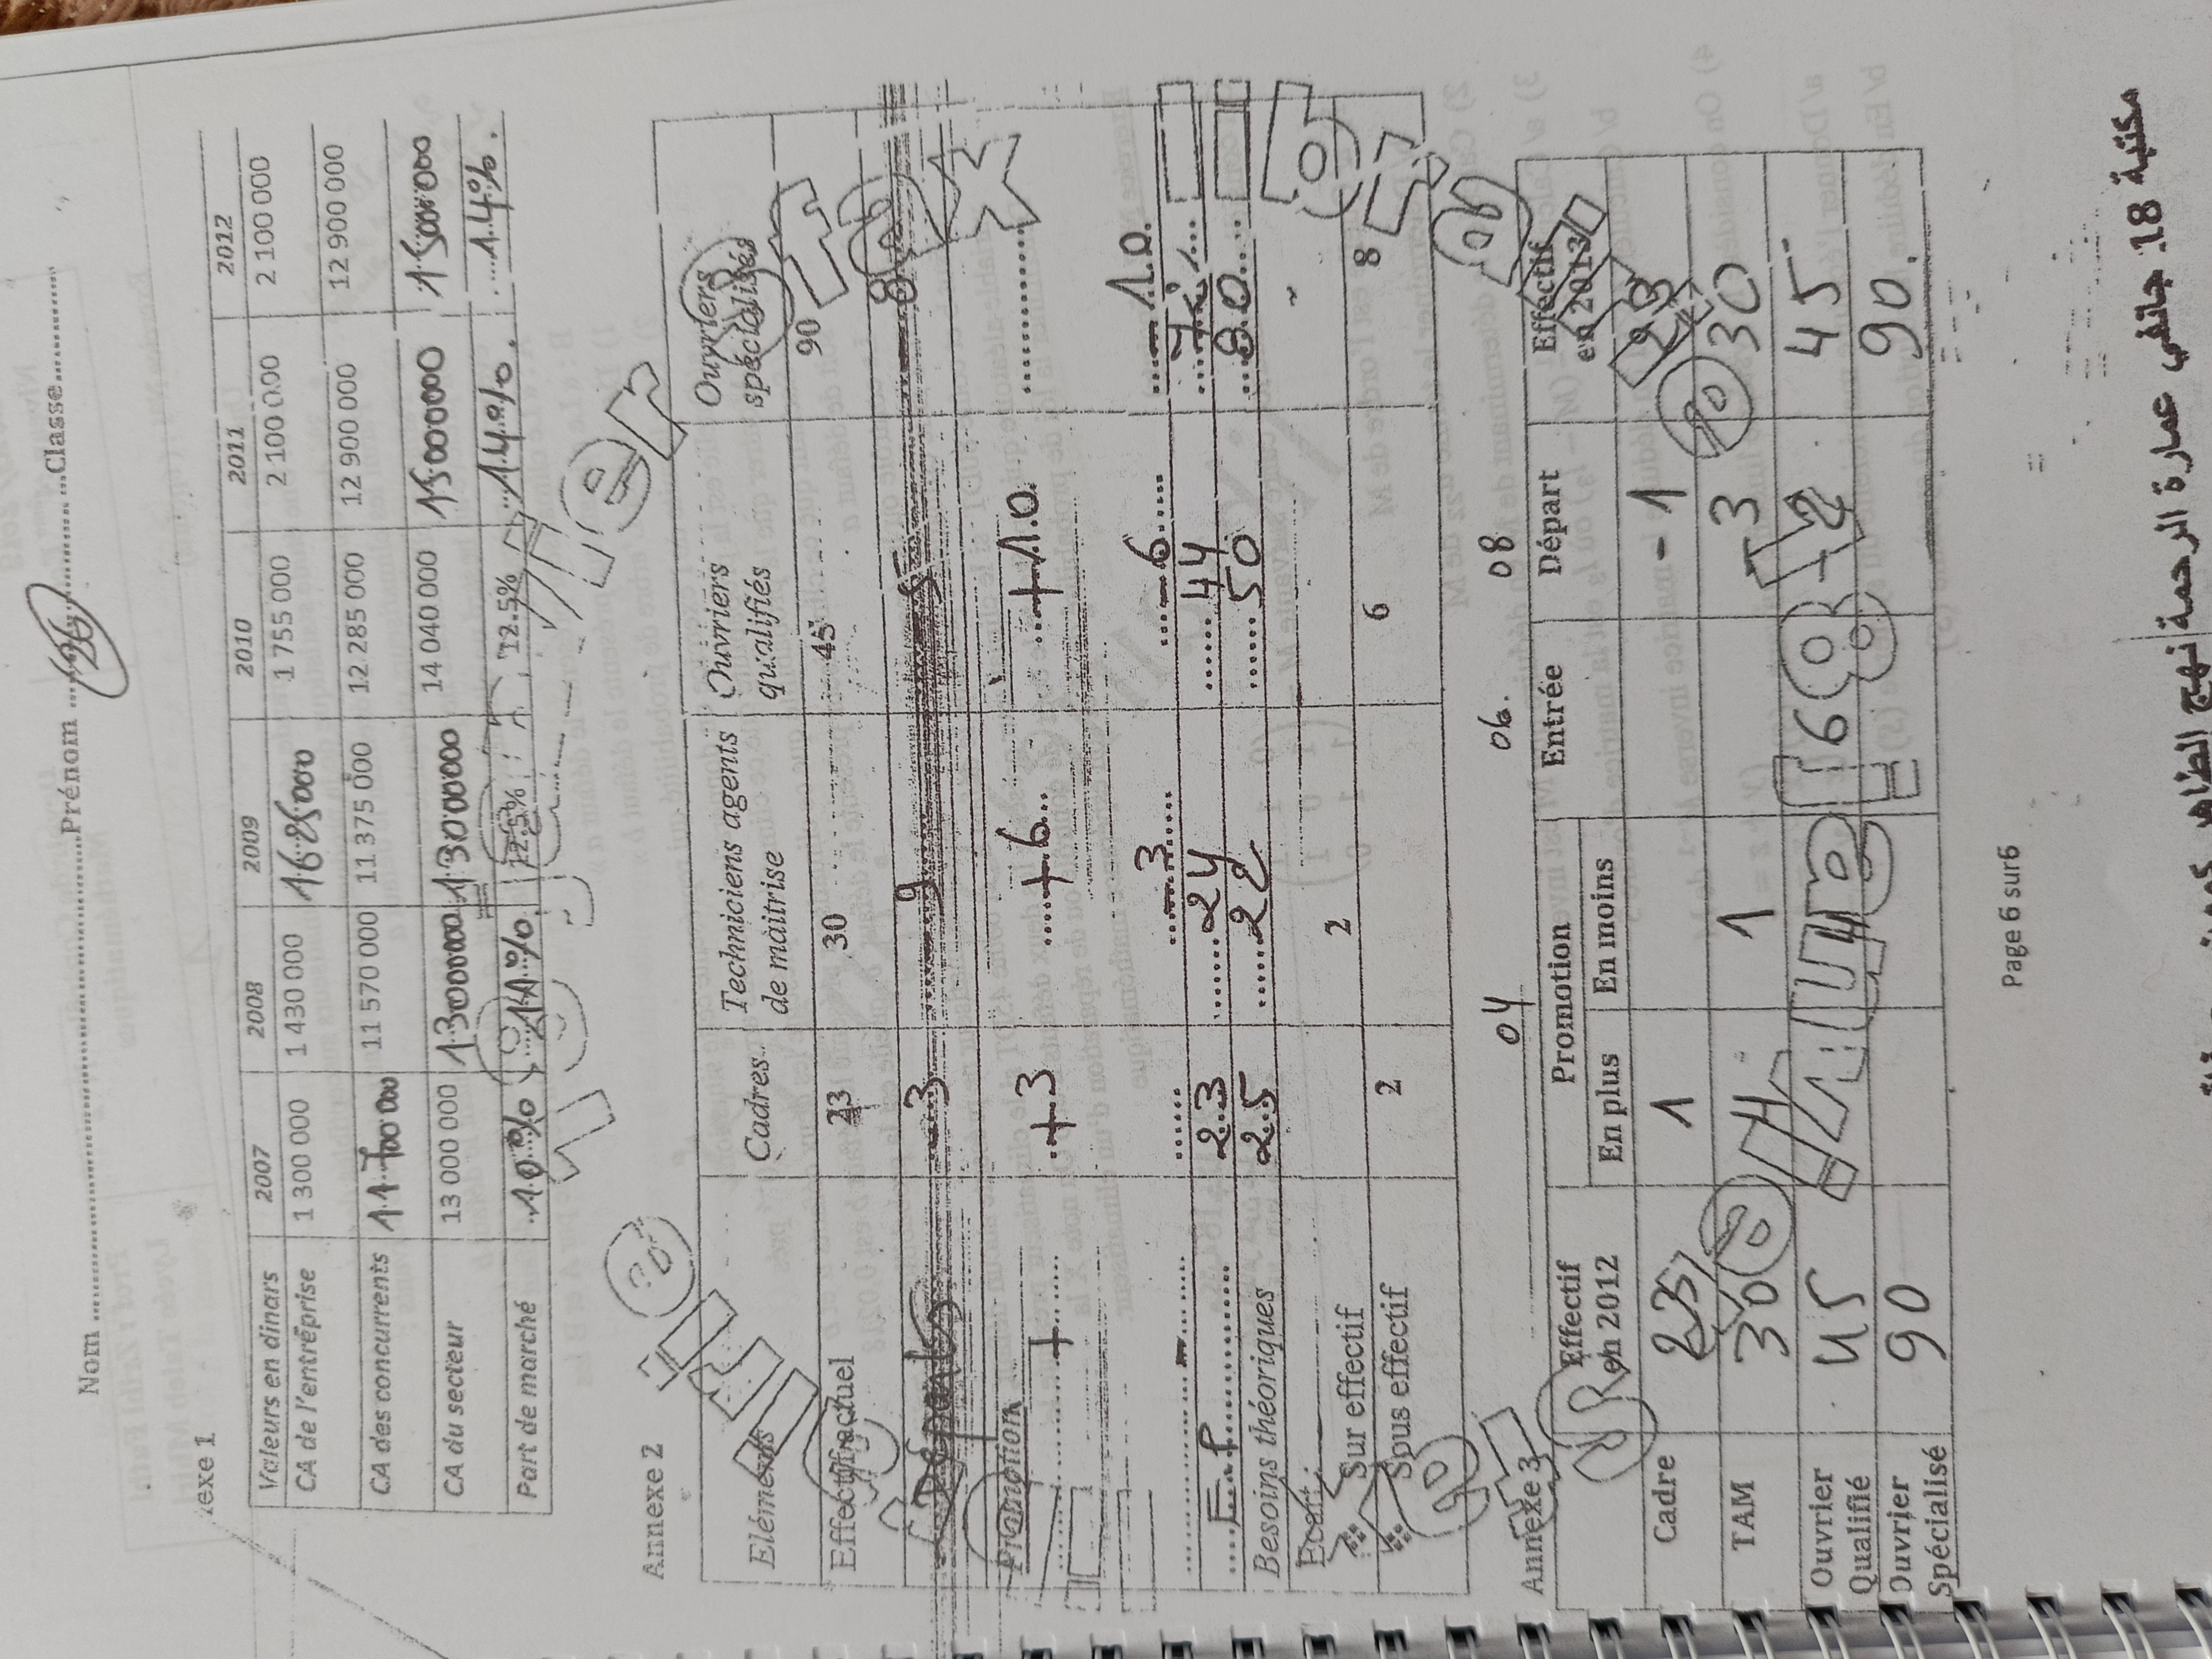 Nom ........ Prénom ........ Classe ........
exe 1
Valeurs en dinars 2007 2008 2009 2010 2011 2012
CA de l'entreprise 1 300 000 1 430 000 1625000 1 755 000 2 100 000 2 100 000
CA des concurrents 11700000 11 570 000 11 375 000 12 285 000 12 900 000 12 900 000
CA du secteur 13 000 000 13000000 13000000 14 040 000 15000000 15000000
Part de marché 10% 11% 12.5% 12.5% 14% 14%
Annexe 2
Eléments Cadres Techniciens agents de maitrise Ouvriers qualifiés Ouvriers spécialisés
Effectif actuel 23 30 45 90
Départs 3 9 5 8
Promotion
+ +3 +6 +10
- 3 -6 -10
E.P 23 24 44 72
Besoins théoriques 25 22 50 80
Ecart:
Sur effectif 2
Sous effectif 2 6 8
04 06. 08
Annexe 3
Effectif en 2012 Promotion Entrée Départ Effectif en 2013
En plus En moins
Cadre 23 1 -1 23
TAM 30 4 1 -3 30
Ouvrier Qualifié 45 4 6 -2 45
Ouvrier Spécialisé 90 90.
Page 6 sur6
مكتبة 18 جانفي عمارة الرحمة نهج الطاهر